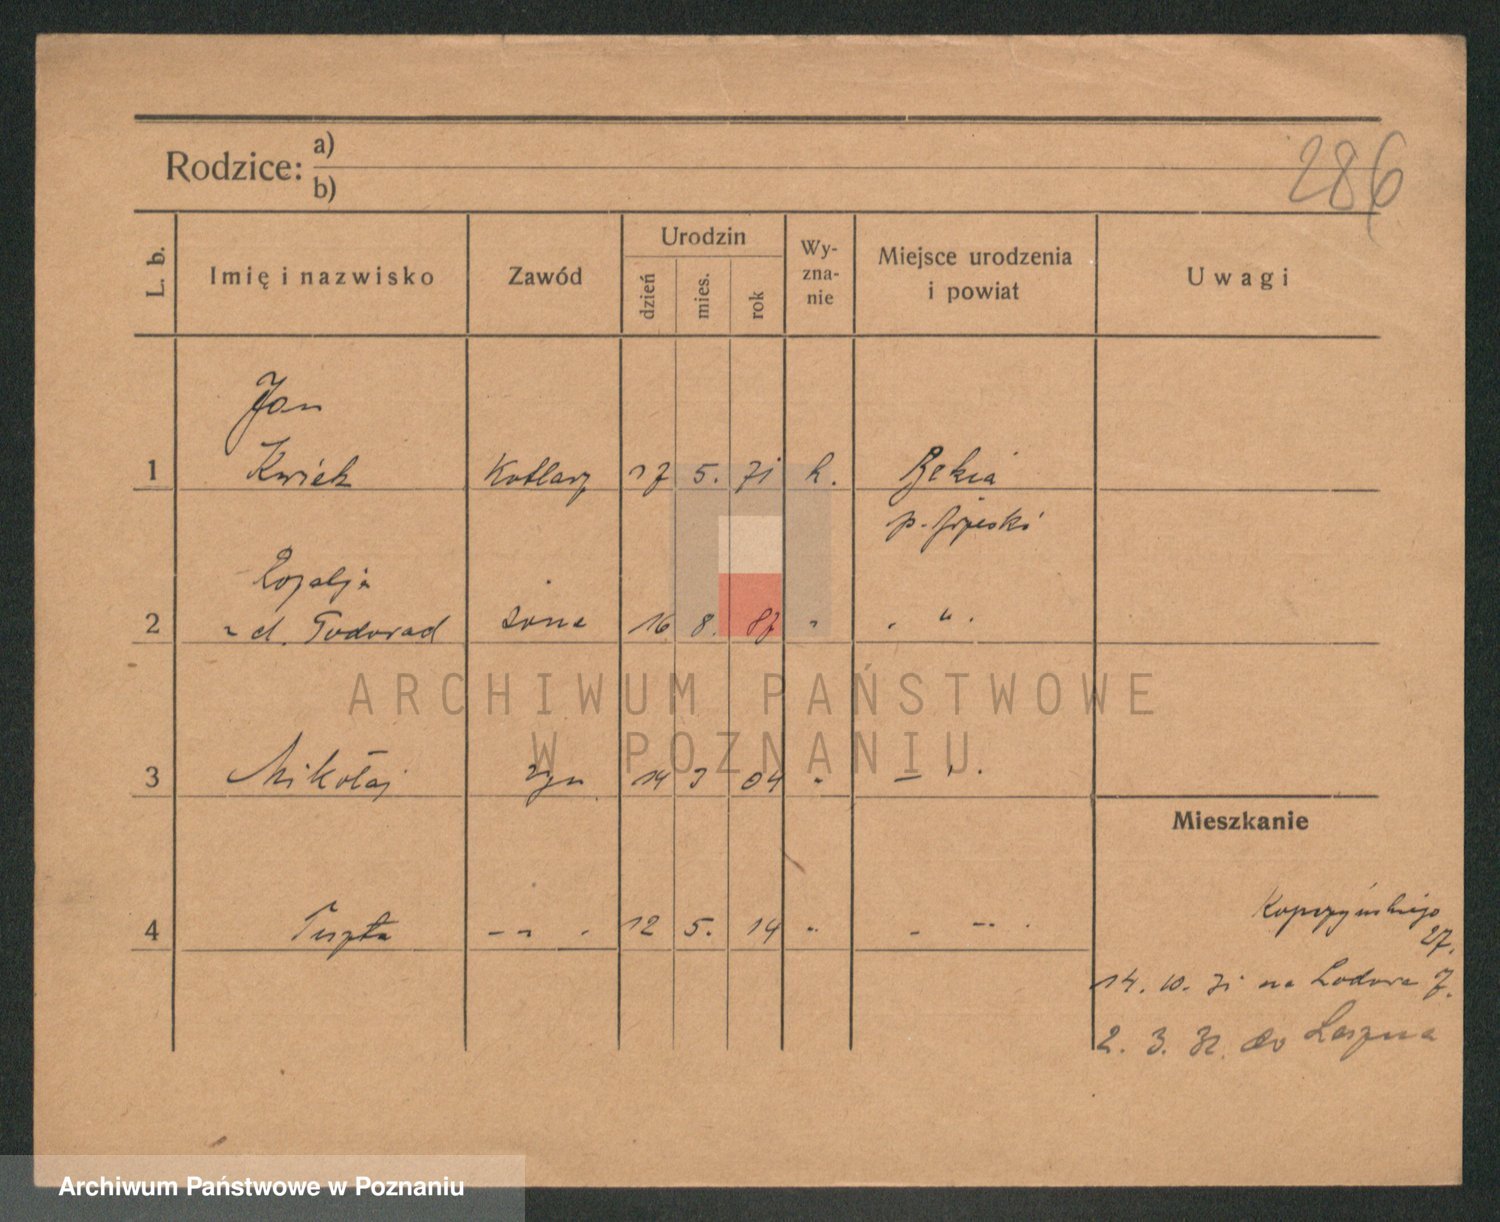 286
Rodzice: a)
b)
L. b. Imię i nazwisko Zawód Urodzin dzień mies. rok Wy-zna-nie Miejsce urodzenia i powiat Uwagi
Jan
1 Kwiek Kotlarz 17 5. 71 k.
2 d. Todorad żona 16 8. 87 "
3 Mikołaj syn 14 3 04 "
Mieszkanie
4 12 5. 14 "
27.
14. 10. 31 na 7.
2. 3. 32. do
ARCHIWUM PAŃSTWOWE
W POZNANIU
Archiwum Państwowe w Poznaniu